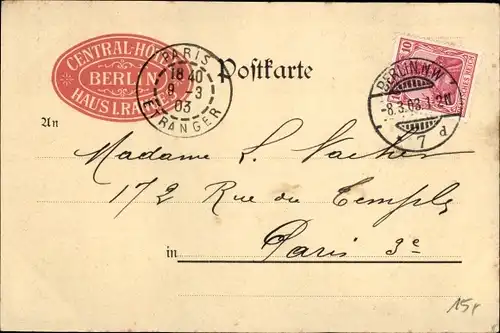 CENTRAL-HO
BERLIN
HAUS I. RA
PARIS
18 40
9 -3
03
ETRANGER
Postkarte
10
BERLIN. N.W.
-8.3.03.1-2N
7 d
An
Madame L. Vacher
172 Rue du Temple
in Paris 3e
15,-